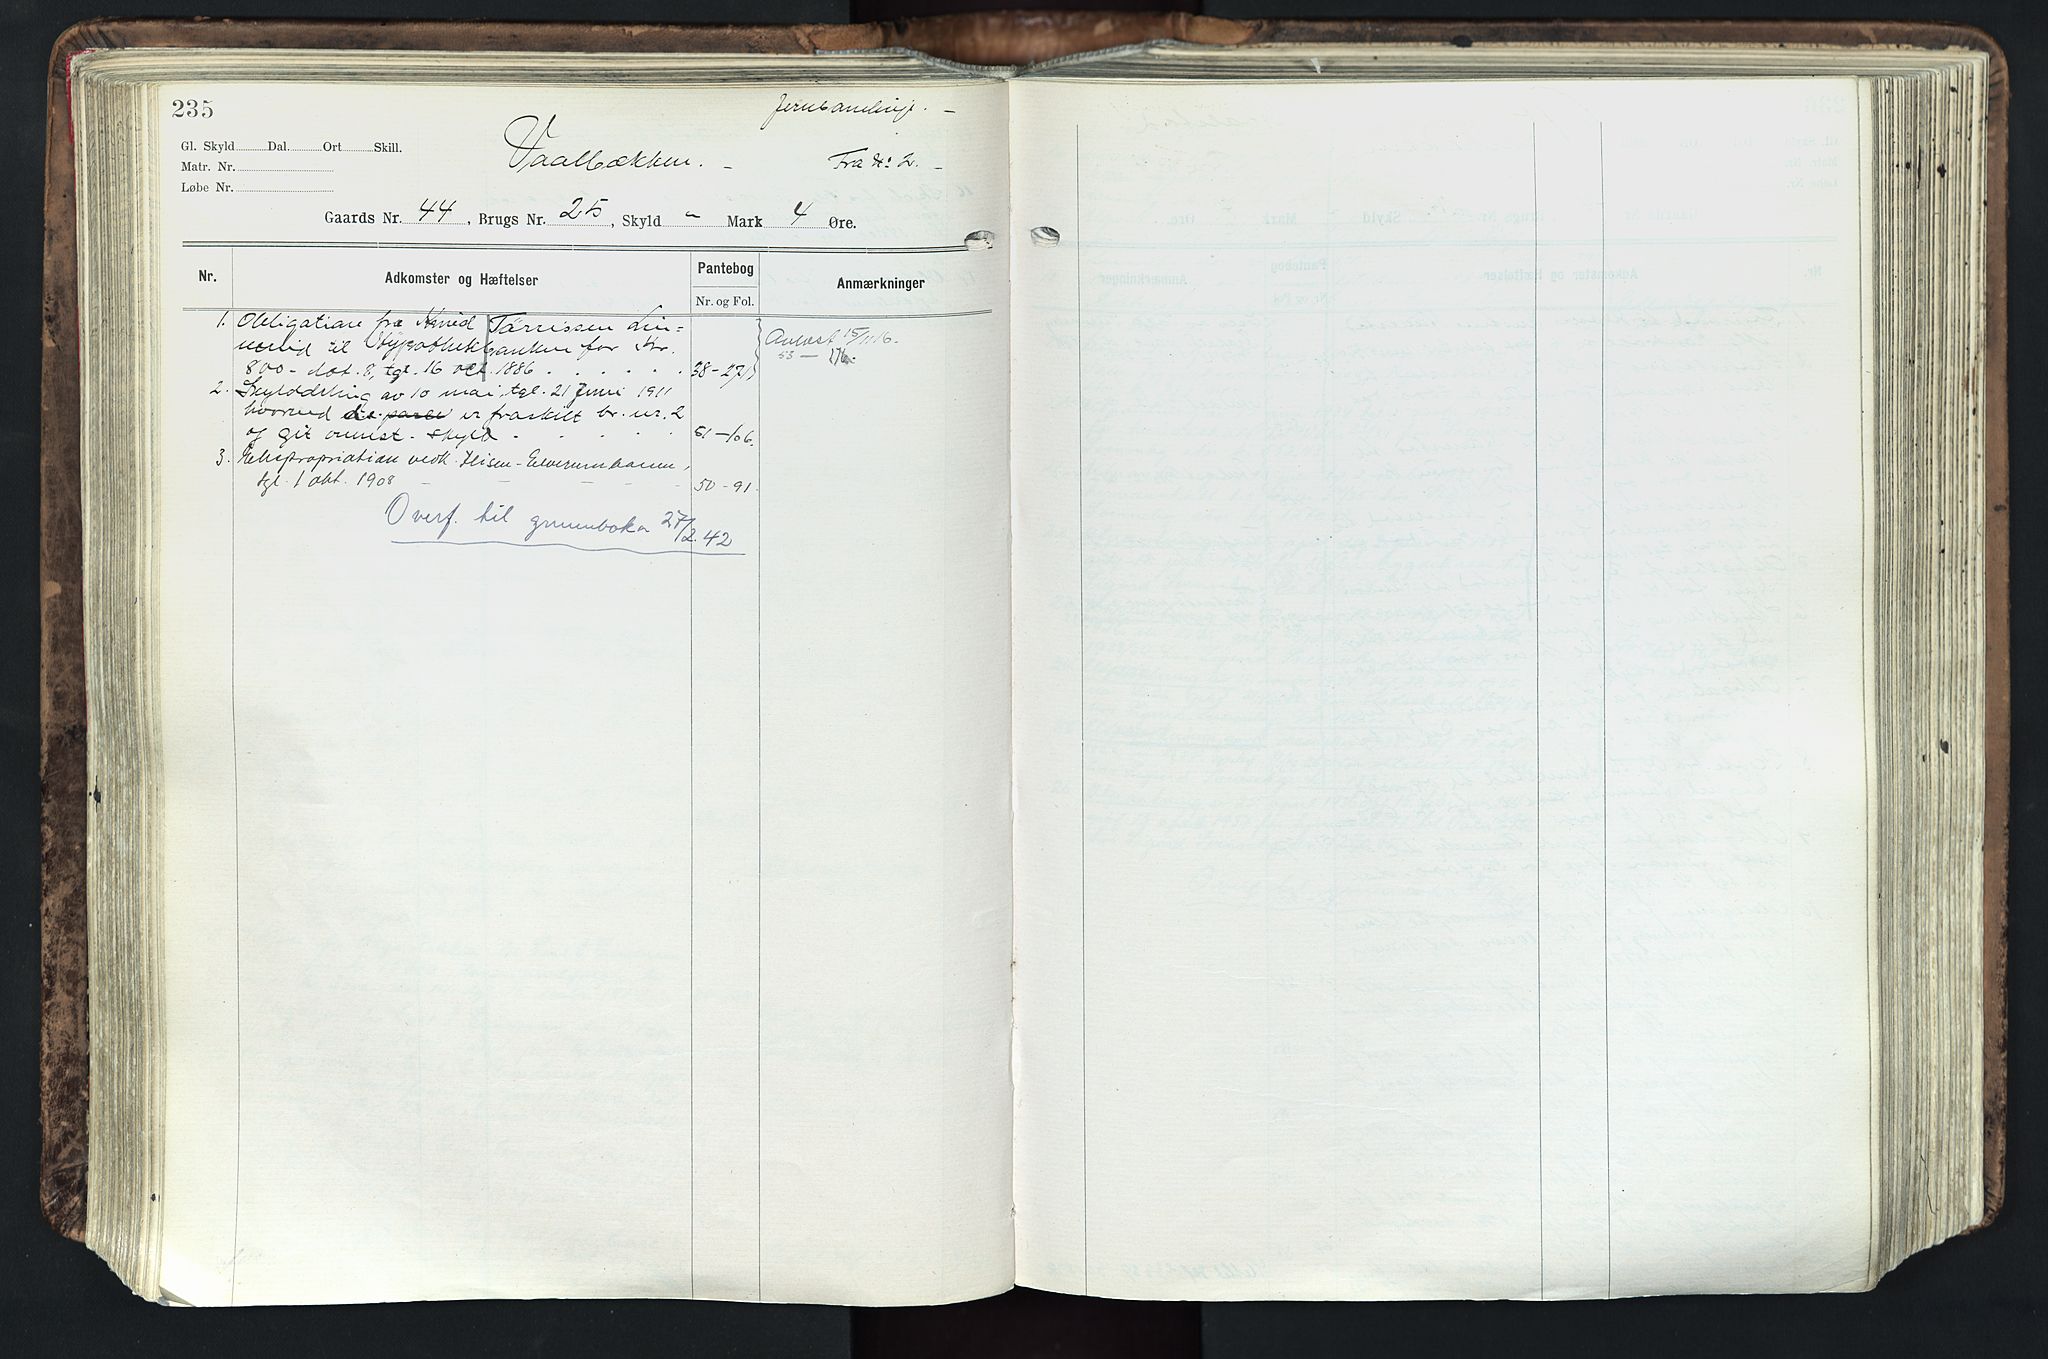 235
Jernbanelinje. -
Gl. Skyld Dal. Ort Skill.
Matr. Nr.
Løbe Nr.
Vaalbækken. - Fra No 2. -
Gaards Nr. 44, Brugs Nr. 25, Skyld " Mark 4 Øre.
Nr. Adkomster og Hæftelser Pantebog Anmærkninger
Nr. og Fol.
1. Obligation fra Tørrissen Lin-
nerud til Hypothekbanken for Kr.
800 - dat. 8, tgl. 16 oct. 1886 . . . . . 38-271
Avlyst 15/11 16.
53 - 176.
2. Skylddeling av 10 mai, tgl. 21 Juni 1911
hvorved er fraskilt br. nr. 2
og git ovenst. skyld . . . . . 51-106.
3. Ekspropriation vedk. Hisen-Elverumbanen,
tgl. 1 okt. 1908 - - - - - 50-91.
Overf. til grunnboka 27/2.42